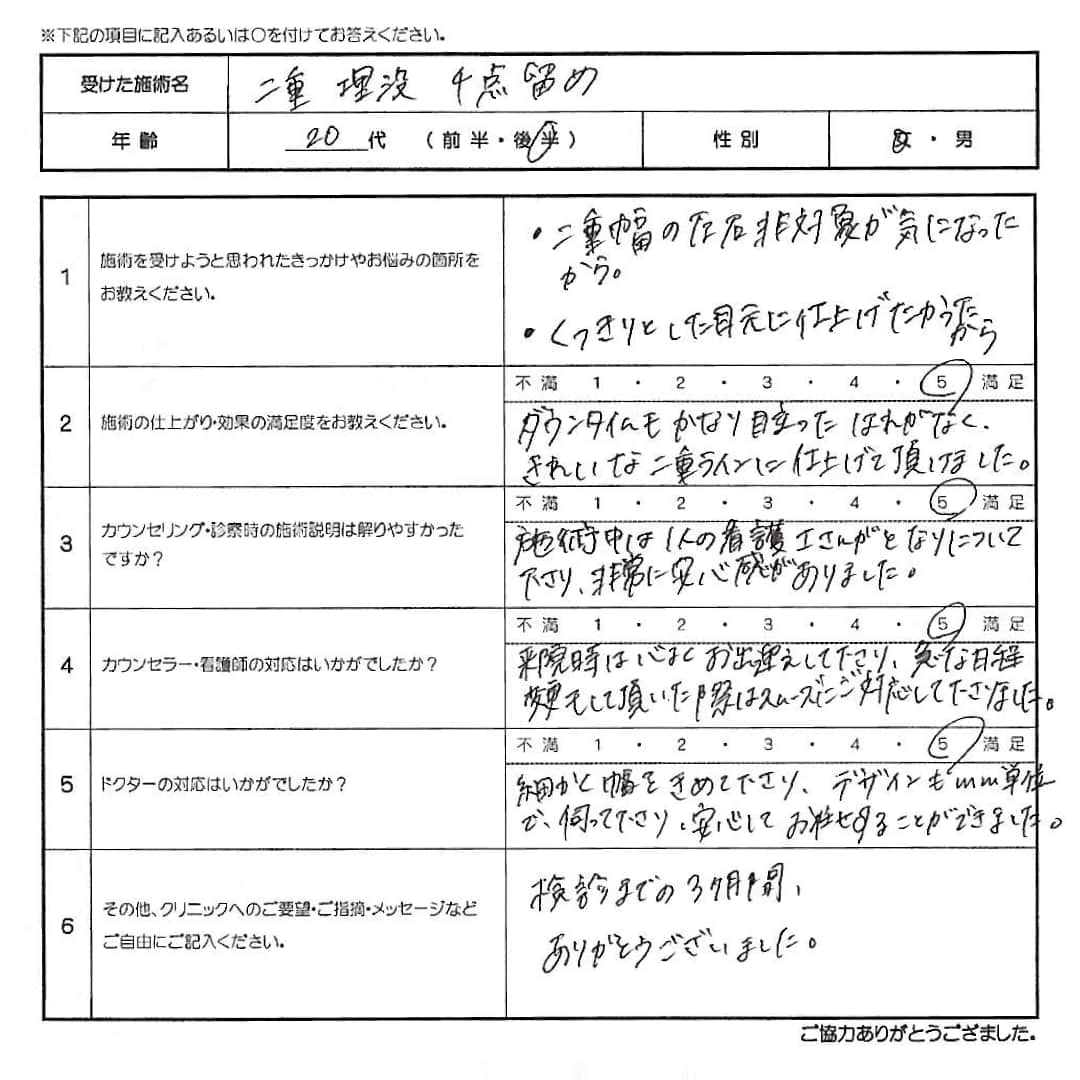 ※下記の項目に記入あるいは〇を付けてお答えください。
受けた施術名 二重 埋没 4点留め
年齢 20代 (前半・後半) 性別 女・男
1 施術を受けようと思われたきっかけやお悩みの箇所を
お教えください。
・二重幅の左右非対象が気になった
から。
・くっきりとした目元に仕上げたかった
から
2 施術の仕上がり・効果の満足度をお教えください。
不満 1 ・ 2 ・ 3 ・ 4 ・ 5 満足
ダウンタイムもかなり目立ったはれがなく、
きれいな二重ラインに仕上げて頂けました。
3 カウンセリング・診察時の施術説明は解りやすかった
ですか？
不満 1 ・ 2 ・ 3 ・ 4 ・ 5 満足
施術中は1人の看護士さんがとなりについて
下さり、非常に安心感がありました。
4 カウンセラー・看護師の対応はいかがでしたか？
不満 1 ・ 2 ・ 3 ・ 4 ・ 5 満足
来院時は心よくお出迎えして下さり、急な日程
変更をして頂いた際はスムーズにご対応して下さりました。
5 ドクターの対応はいかがでしたか？
不満 1 ・ 2 ・ 3 ・ 4 ・ 5 満足
細かく幅をきめて下さり、デザインもmm単位
で、伺って下さり、安心してお任せすることができました。
6 その他、クリニックへのご要望・ご指摘・メッセージなど
ご自由にご記入ください。
検診までの3ヶ月間、
ありがとうございました。
ご協力ありがとうござました。